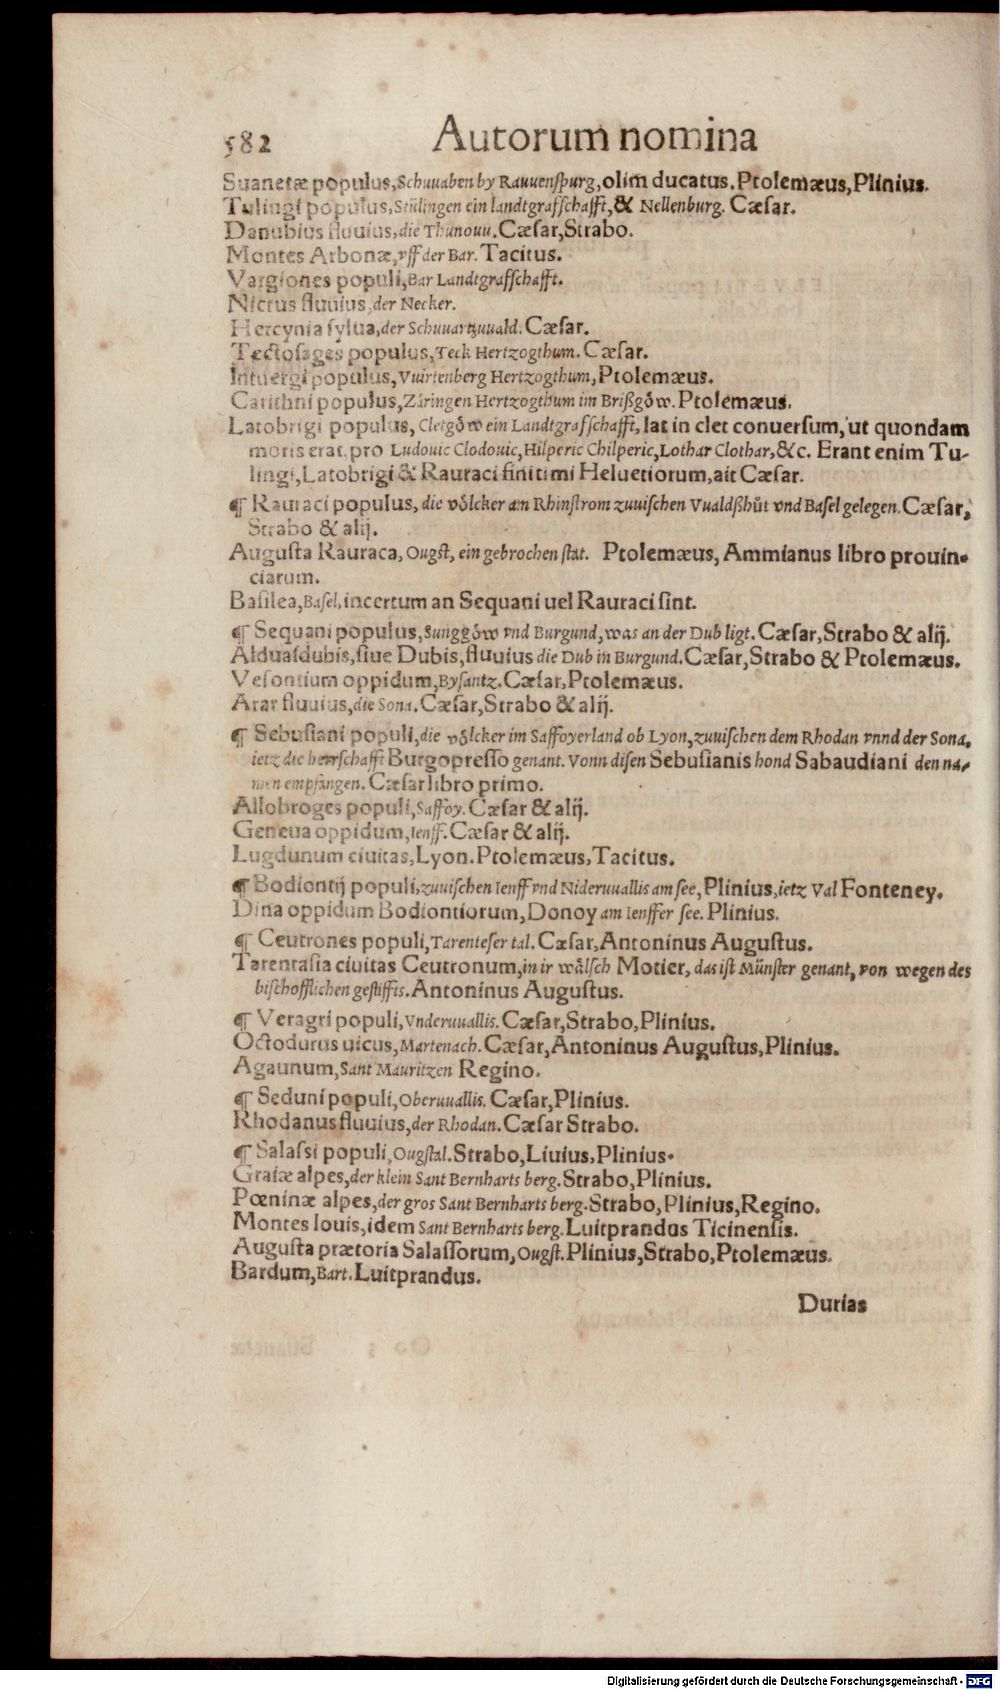 582 Autorum nomina
Suanetæ populus, Schuuaben by Rauuenſpurg, olim ducatus. Ptolemæus, Plinius.
Tulingi populus, Stůlingen ein landtgraſſchafft, & Nellenburg. Cæſar.
Danubius fluuius, die Thůnouu. Cæſar, Strabo.
Montes Arbonæ, vff der Bar. Tacitus.
Vargiones populi, Bar Landtgraſſchafft.
Nicrus fluuius, der Necker.
Hercynia ſylua, der Schuuartzuuald. Cæſar.
Tectoſages populus, Teck Hertzogthum. Cæſar.
Intuergi populus, Vuirtenberg Hertzogthum, Ptolemæus.
Carithni populus, Zåringen Hertzogthum im Brißgǒw. Ptolemæus.
Latobrigi populus, Cletgǒw ein Landtgraſſchafft, lat in clet conuerſum, ut quondam
moris erat, pro Ludouic Clodouic, Hilperic Chilperic, Lothar Clothar, &c. Erant enim Tu-
lingi, Latobrigi & Rauraci finitimi Heluetiorum, ait Cæſar.
¶ Rauraci populus, die vǒlcker am Rhinſtrom zuuiſchen Vualdßhůt vnd Baſel gelegen. Cæſar,
Strabo & alij.
Auguſta Rauraca, Ougſt, ein gebrochen ſtat. Ptolemæus, Ammianus libro prouin-
ciarum.
Baſilea, Baſel, incertum an Sequani uel Rauraci ſint.
¶ Sequani populus, Sunggǒw vnd Burgund, was an der Dub ligt. Cæſar, Strabo & alij.
Alduaſdubis, ſiue Dubis, fluuius die Dub in Burgund. Cæſar, Strabo & Ptolemæus.
Veſontium oppidum, Byſantz. Cæſar, Ptolemæus.
Arar fluuius, die Sona. Cæſar, Strabo & alij.
¶ Sebuſiani populi, die vǒlcker im Saffoyerland ob Lyon, zuuiſchen dem Rhodan vnnd der Sona,
ietz die herrſchafft Burgopreſſo genant. Vonn diſen Sebuſianis hond Sabaudiani den na-
men empfangen. Cæſar libro primo.
Allobroges populi, Saffoy. Cæſar & alij.
Geneua oppidum, Ienff. Cæſar & alij.
Lugdunum ciuitas, Lyon. Ptolemæus, Tacitus.
¶ Bodiontij populi, zuuiſchen Ienff vnd Nideruuallis am ſee, Plinius, ietz Val Fonteney.
Dina oppidum Bodiontiorum, Donoy am Ienffer ſee. Plinius.
¶ Ceutrones populi, Tarenteſer tal. Cæſar, Antoninus Auguſtus.
Tarentaſia ciuitas Ceutronum, in ir wålſch Motier, das iſt Münſter genant, von wegen des
biſchofflichen geſtiffts. Antoninus Auguſtus.
¶ Veragri populi, Vnderuuallis. Cæſar, Strabo, Plinius.
Octodurus uicus, Martenach. Cæſar, Antoninus Auguſtus, Plinius.
Agaunum, Sant Mauritzen Regino.
¶ Seduni populi, Oberuuallis. Cæſar, Plinius.
Rhodanus fluuius, der Rhodan. Cæſar Strabo.
¶ Salaſsi populi, Ougſtal. Strabo, Liuius, Plinius.
Graiæ alpes, der klein Sant Bernharts berg. Strabo, Plinius.
Pœninæ alpes, der gros Sant Bernharts berg. Strabo, Plinius, Regino.
Montes Iouis, idem Sant Bernharts berg. Luitprandus Ticinenſis.
Auguſta prætoria Salaſſorum, Ougſt. Plinius, Strabo, Ptolemæus.
Bardum, Bart. Luitprandus.
Durias
Digitalisierung gefördert durch die Deutsche Forschungsgemeinschaft - DFG